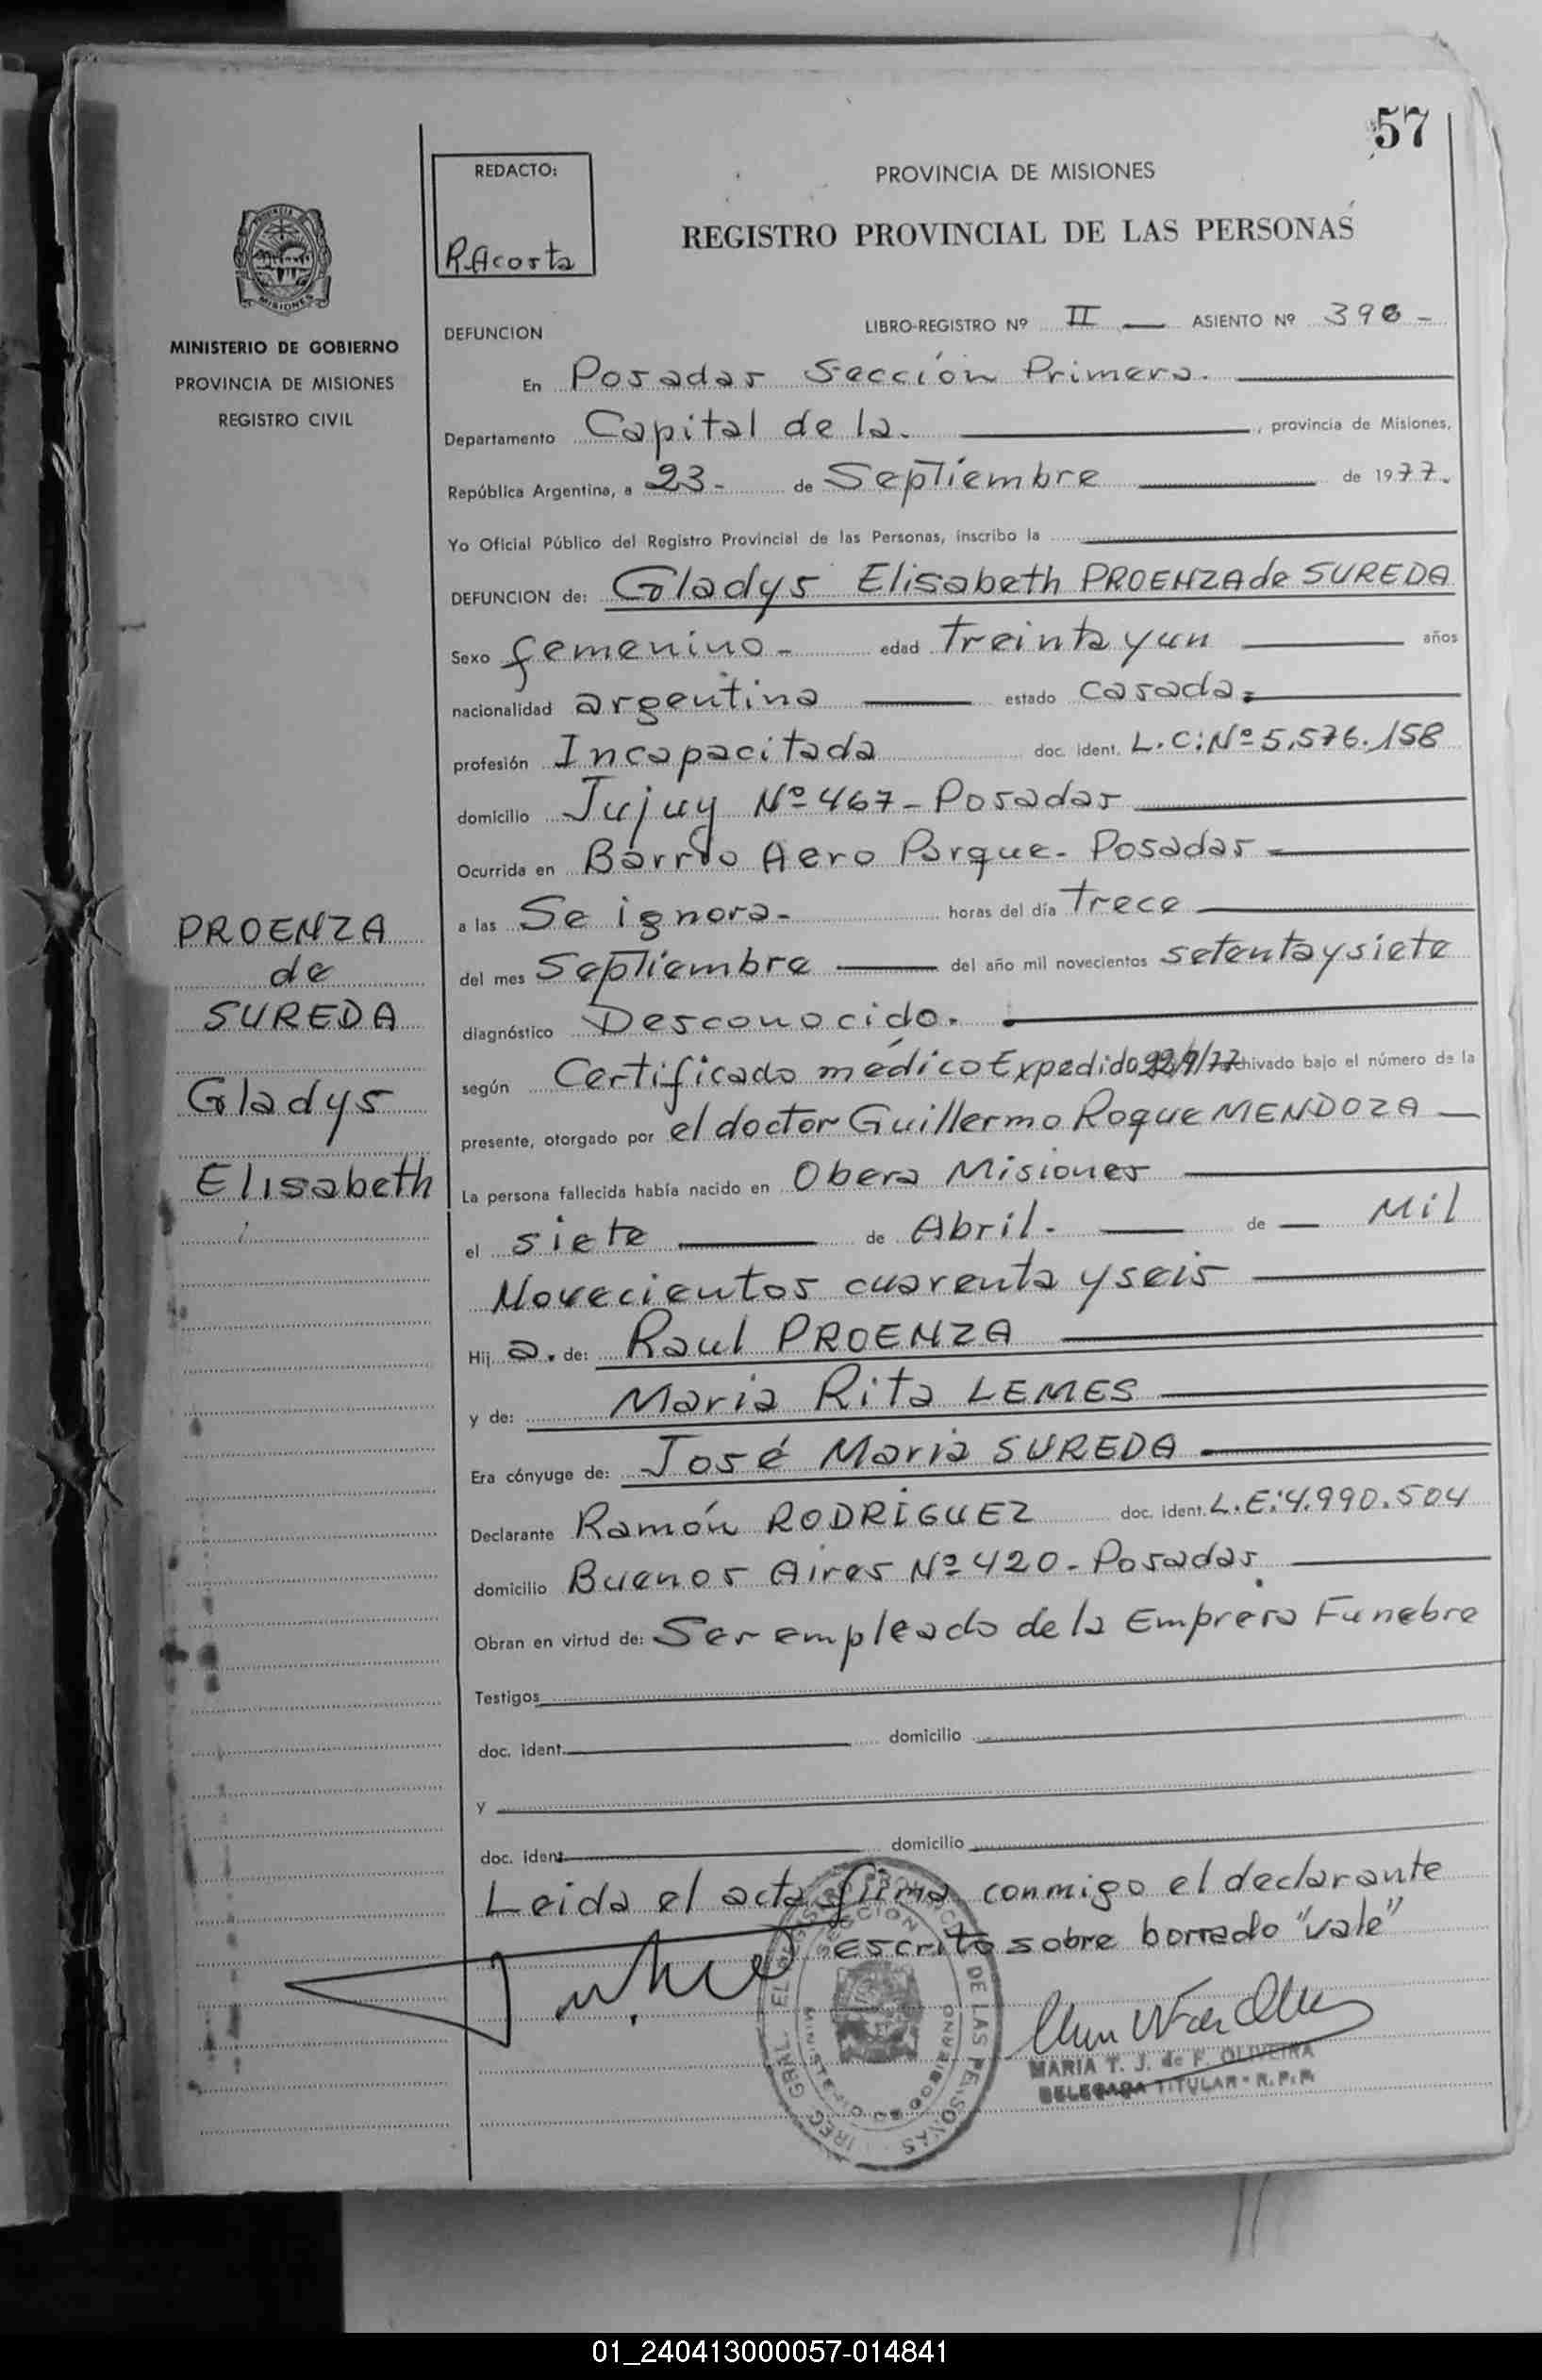 57
REDACTO:
R. Acosta
PROVINCIA DE MISIONES
REGISTRO PROVINCIAL DE LAS PERSONAS
MISIONES
MINISTERIO DE GOBIERNO
PROVINCIA DE MISIONES
REGISTRO CIVIL
DEFUNCION
LIBRO-REGISTRO Nº II — ASIENTO Nº 396 -
En Posadas Sección Primera.
Departamento Capital de la. , provincia de Misiones,
República Argentina, a 23- de Septiembre de 1977.
Yo Oficial Público del Registro Provincial de las Personas, inscribo la
DEFUNCION de: Gladys Elisabeth PROENZA de SUREDA
Sexo femenino- edad treinta y un años
nacionalidad argentina estado casada.
profesión Incapacitada doc. ident. L.C: Nº 5.576.158
domicilio Jujuy Nº 467 - Posadas
Ocurrida en Barrio Aero Parque- Posadas
a las Se ignora- horas del día trece
del mes Septiembre del año mil novecientos setenta y siete
diagnóstico Desconocido.
según Certificado médico Expedido 22/9/77 chivado bajo el número de la
presente, otorgado por el doctor Guillermo Roque MENDOZA
La persona fallecida había nacido en Obera Misiones
el siete de Abril. de Mil
Novecientos cuarenta y seis
Hij a. de: Raul PROENZA
y de: Maria Rita LEMES
Era cónyuge de: José Maria SUREDA
Declarante Ramón RODRÍGUEZ doc. ident. L.E: 4.990.504
domicilio Buenos Aires Nº 420 - Posadas
Obran en virtud de: Ser empleado de la Empresa Funebre
Testigos
doc. ident. domicilio
y
doc. ident. domicilio
Leida el acta firma conmigo el declarante
escrito sobre borrado "vale"
MARIA T. J. de F. OLIVEIRA
DELEGADA TITULAR - R.P.P.
PROENZA
de
SUREDA
Gladys
Elisabeth
01_240413000057-014841